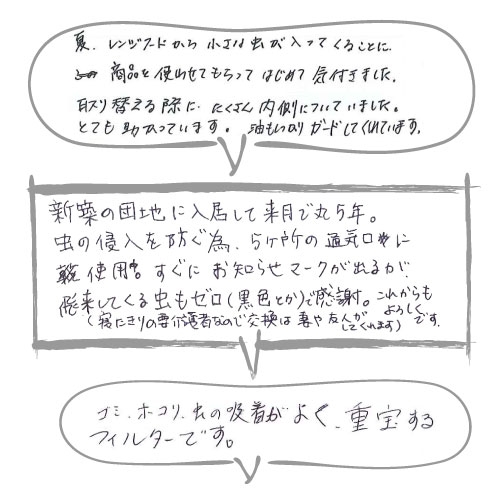 夏、レンジフードから小さな虫が入ってくることに、
商品を使わせてもらってはじめて気付きました。
取り替える際に、たくさん内側についていました。
とても助かっています。油もしっかりガードしてくれています。
新築の団地に入居して来月で丸5年。
虫の侵入を防ぐ為、5ヶ所の通気口に
使用中。すぐにお知らせマークが出るが
飛来してくる虫もゼロ(黒色とか)で感謝。これからも
(寝たきりの要介護者なので交換は妻や友人が よろしく
してくれます) です。
ゴミ、ホコリ、虫の吸着がよく、重宝する
フィルターです。